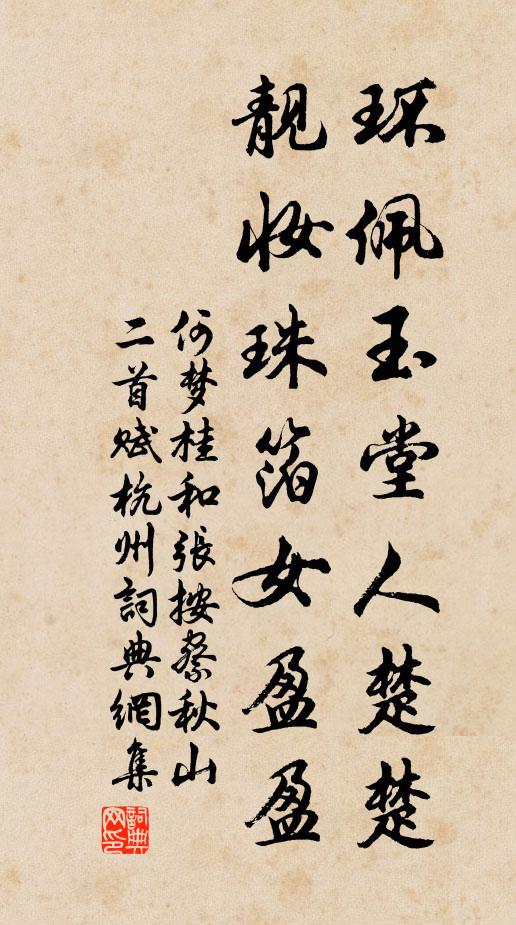 环佩玉堂人楚楚
靓妆珠箔女盈盈
何梦桂和張按察秋山
二首赋杭州詞典網集
詞典
网印